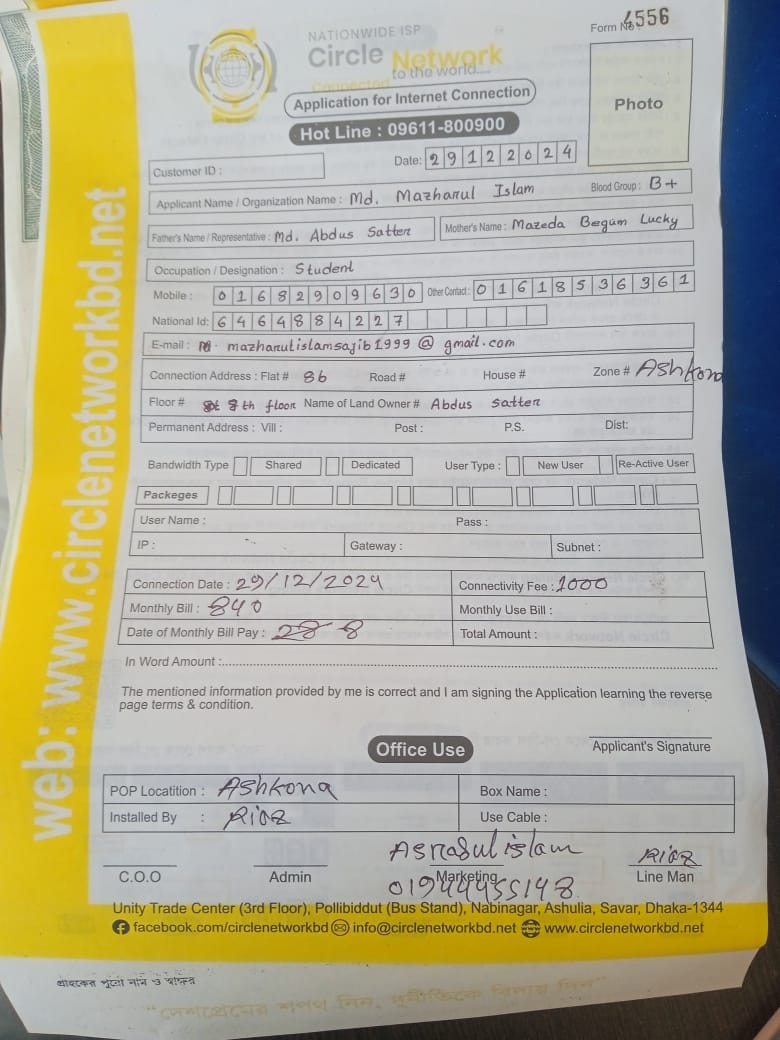 NATIONWIDE ISP
Circle Network
Connected to the world....
Form No 4556
Application for Internet Connection
Hot Line : 09611-800900
Photo
Customer ID :
Date: 29122024
Applicant Name / Organization Name : Md. Mazharul Islam Blood Group : B+
Father's Name / Representative : Md. Abdus Satter Mother's Name : Mazeda Begum Lucky
Occupation / Designation : Student
Mobile : 01682909630 Other Contact : 01618536361
National Id: 6464884227
E-mail : mazharulislamsajib1999@gmail.com
Connection Address : Flat # 8b Road # House # Zone # Ashkona
Floor # 8th floor Name of Land Owner # Abdus Satter
Permanent Address : Vill : Post : P.S. Dist:
Bandwidth Type Shared Dedicated User Type : New User Re-Active User
Packeges
User Name : Pass :
IP : Gateway : Subnet :
Connection Date : 29/12/2024 Connectivity Fee : 1000
Monthly Bill : 840 Monthly Use Bill :
Date of Monthly Bill Pay : 28 8 Total Amount :
In Word Amount :
The mentioned information provided by me is correct and I am signing the Application learning the reverse
page terms & condition.
Applicant's Signature
Office Use
POP Locatition : Ashkona Box Name :
Installed By : Riaz Use Cable :
Asrasul islam Riaz
C.O.O Admin Marketing Line Man
Unity Trade Center (3rd Floor), Pollibiddut (Bus Stand), Nabinagar, Ashulia, Savar, Dhaka-1344
facebook.com/circlenetworkbd info@circlenetworkbd.net www.circlenetworkbd.net
web: www.circlenetworkbd.net
গ্রাহকের পুরো নাম ও স্বাক্ষর